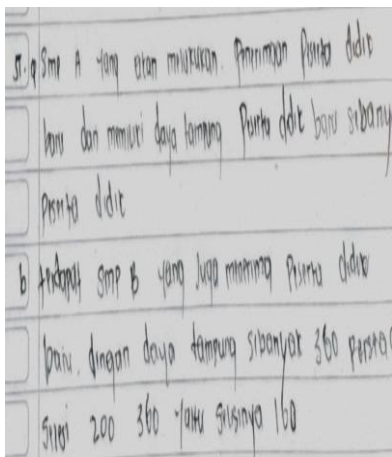 5. a Smp A yang akan melakukan Penerimaan Peserta didik
baru dan memiliki daya tampung Peserta didik baru sebany
Peserta didik
b terdapat Smp B yang Juga menerima Peserta didik
baru. dengan daya tampung sebanyak 360 perse
200 360 Yaitu selisinya 160